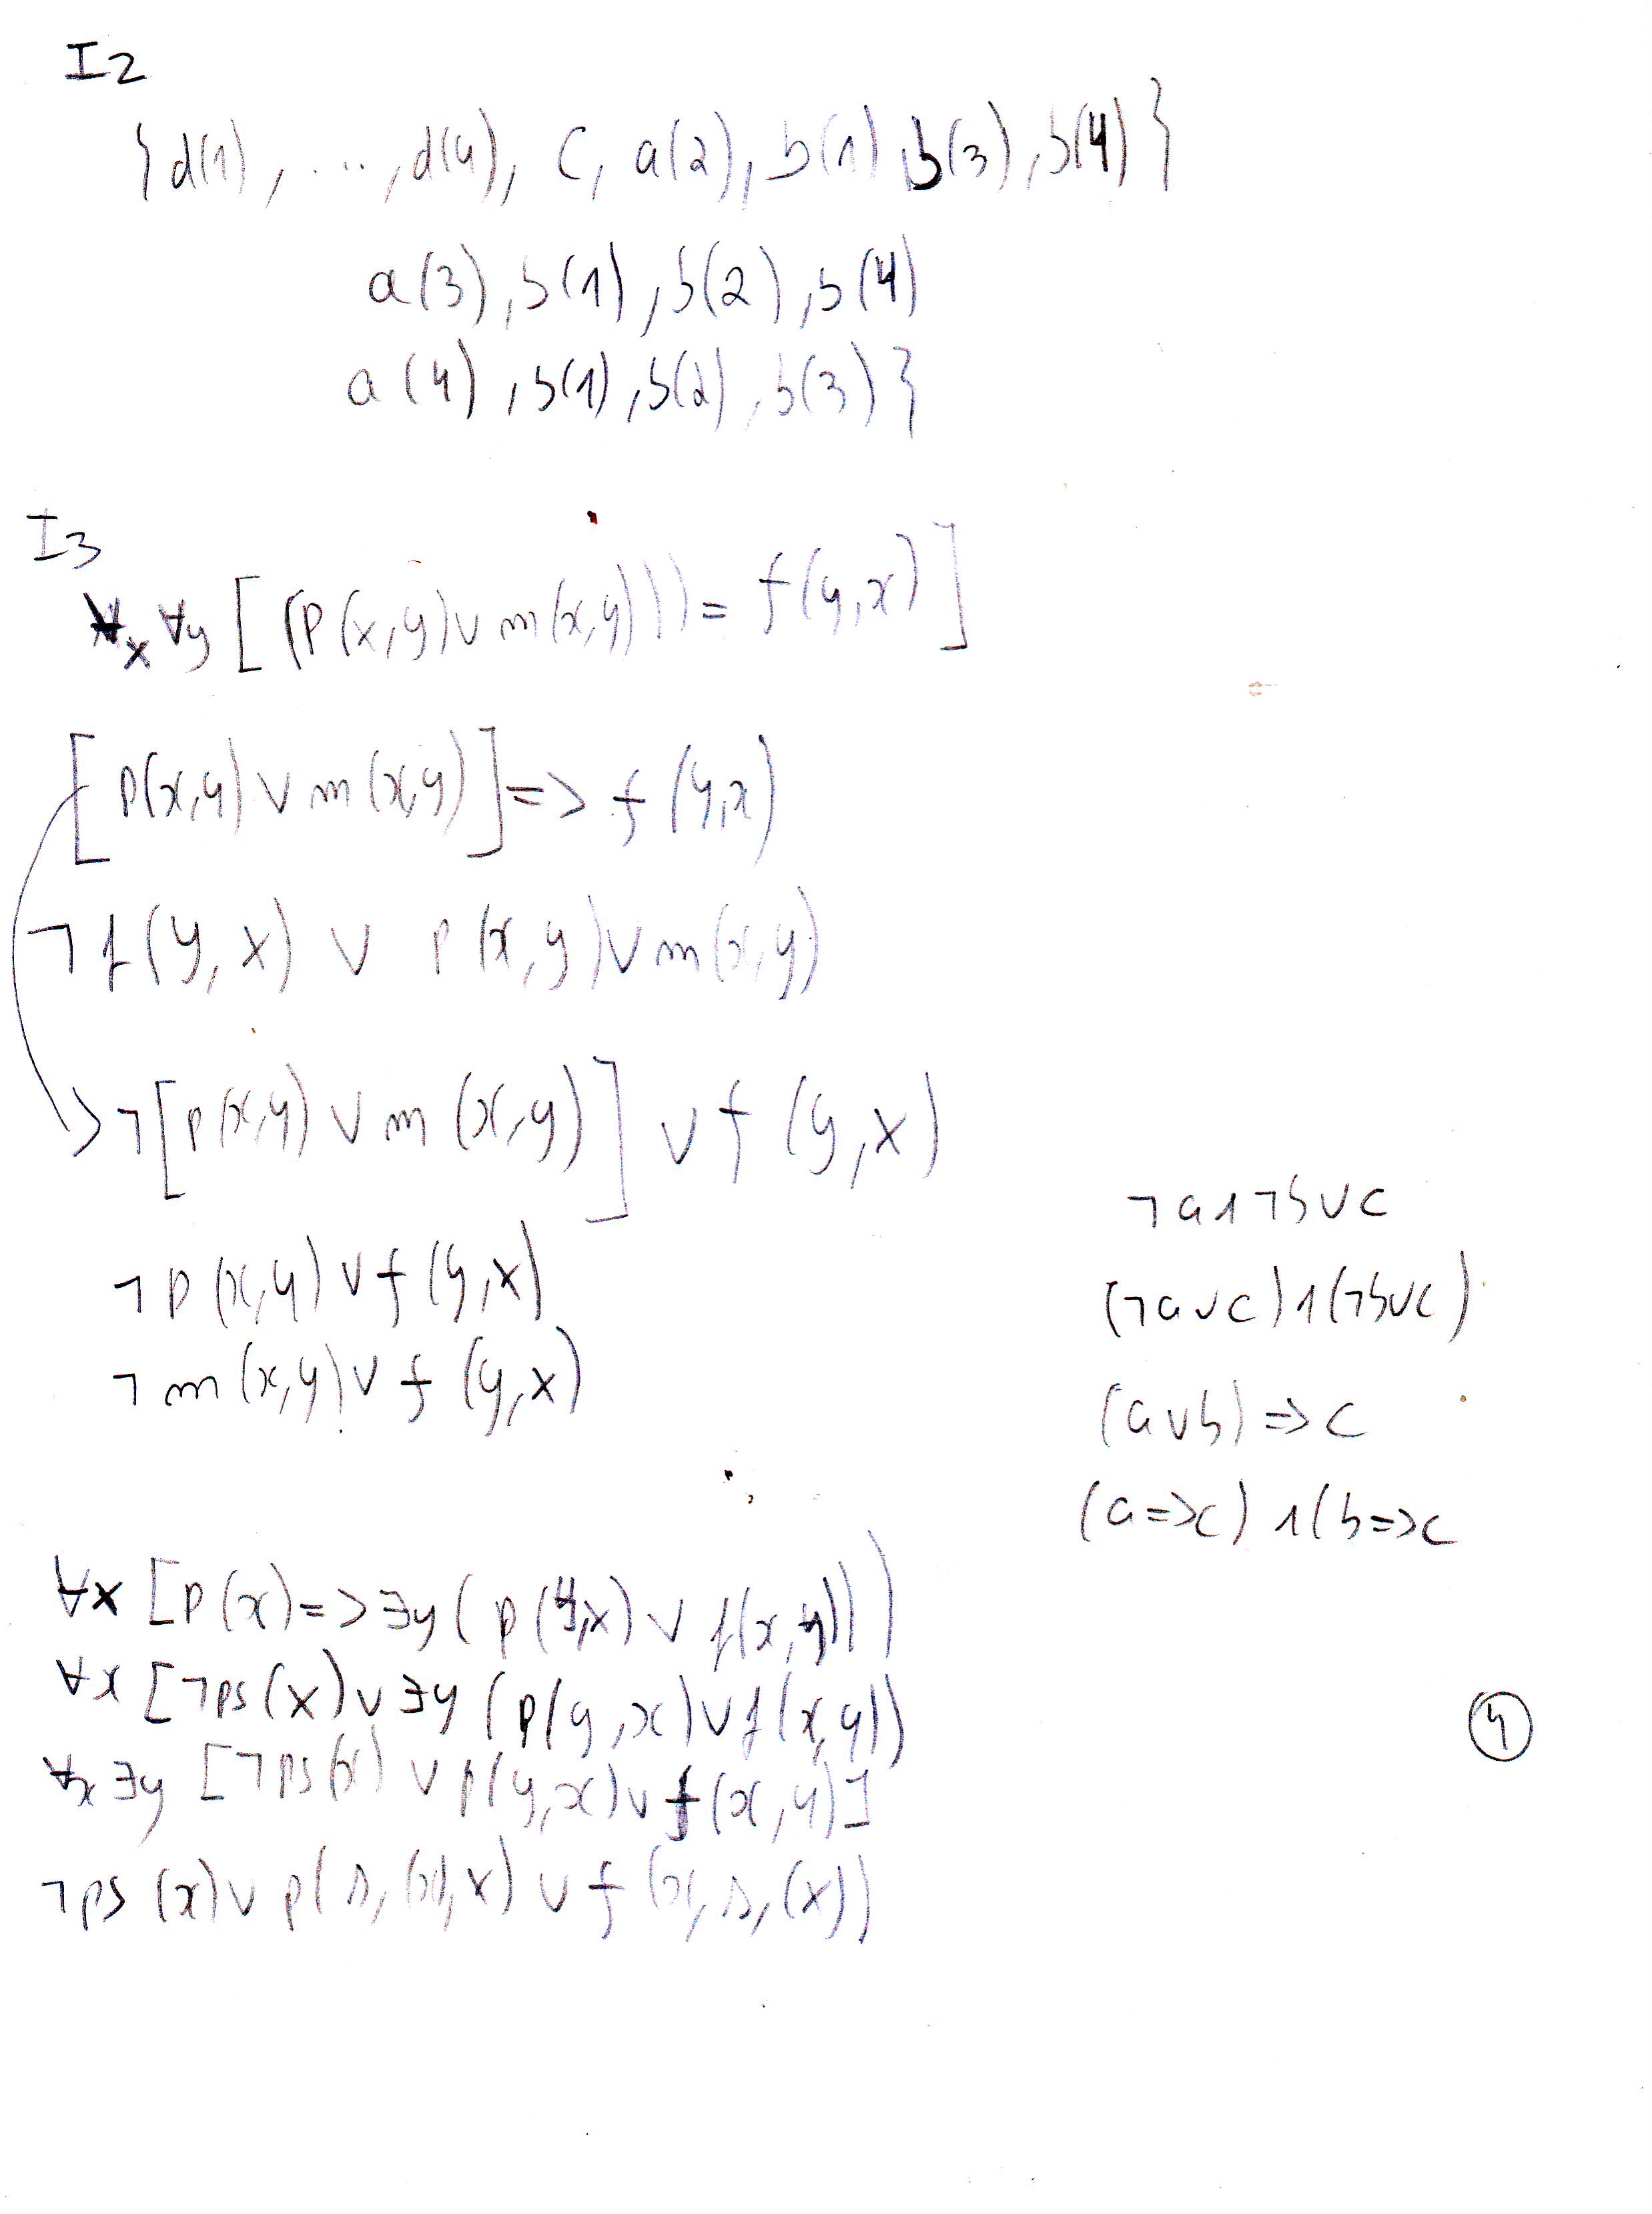 I2
{d(1), ..., d(4), C, a(2), b(1) b(3), b(4)}
a(3), b(1), b(2), b(4)
a(4), b(1), b(2), b(3)}
I3
∀x ∀y [(p(x,y) ∨ m(x,y))) = f(y,x)]
[p(x,y) ∨ m(x,y)] => f(y,x)
¬f(y,x) ∨ p(x,y) ∨ m(x,y)
>¬[p(x,y) ∨ m(x,y)] ∨ f(y,x)
¬p(x,y) ∨ f(y,x)
¬m(x,y) ∨ f(y,x)
¬a∧¬b∨c
(¬a∨c)∧(¬b∨c)
(a∨b) => c
(a=>c) ∧(b=>c
∀x [p(x) => ∃y (p(y,x) ∨ f(x,y)))
∀x [¬ps(x) ∨ ∃y (p(y,x) ∨ f(x,y))
∀x ∃y [¬ps(x) ∨ p(y,x) ∨ f(x,y)]
¬ps(x) ∨ p(s,(x),x) ∨ f(x,s,(x))
4